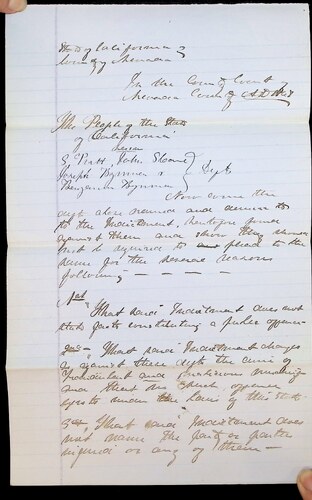 State of California
County of
In the County Court of
County
The People of the State
of California
versus
Pratt, John Sloane
Joseph Wynman &
Benjamin Wynman
Defts
Now come the
defts above named and demur to
to the Indictment, heretofore found
against them and show they should
not be required to plead to the
same for the several reasons
following — — — —
1st, "That said" Indictment does not
state facts constituting a public offence
2nd "That said" Indictment charges
as against these defts the crime of
and malicious mischief
and there no such offence
exists under the laws of this State
3rd, "That said" Indictment does
not name the party or parties
injured or any of them —